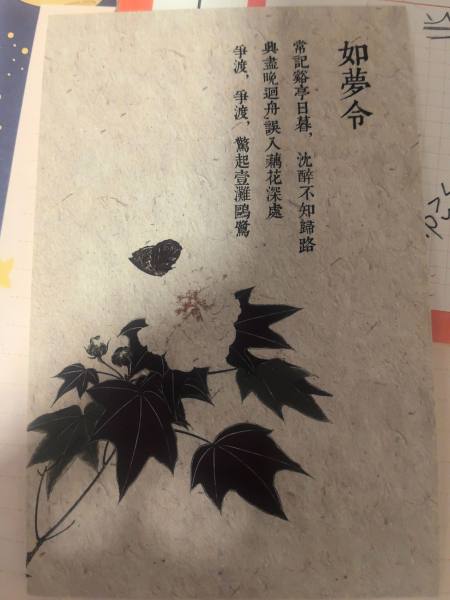 如夢令
常記谿亭日暮，沈醉不知歸路
興盡晚迴舟，誤入藕花深處
爭渡，爭渡，驚起壹灘鷗鷺